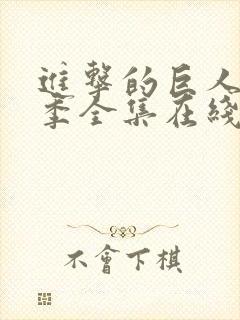 進擊的巨人
季全集在綫
不會下棋